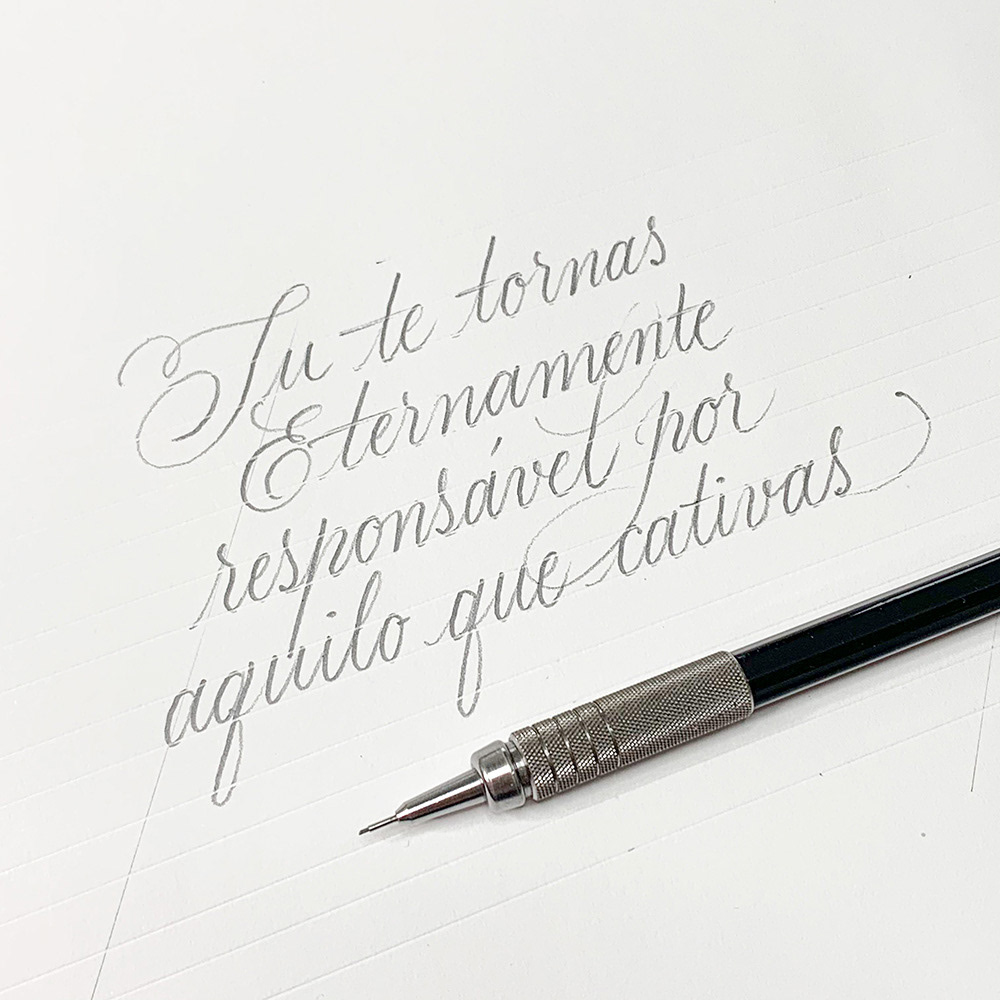 Tu te tornas
Eternamente
responsável por
aquilo que cativas